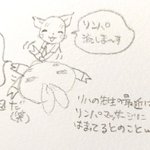 リンパ
流しまーす
リハの先生が最近
リンパマッサージに
はまてるとのことw
(笑)